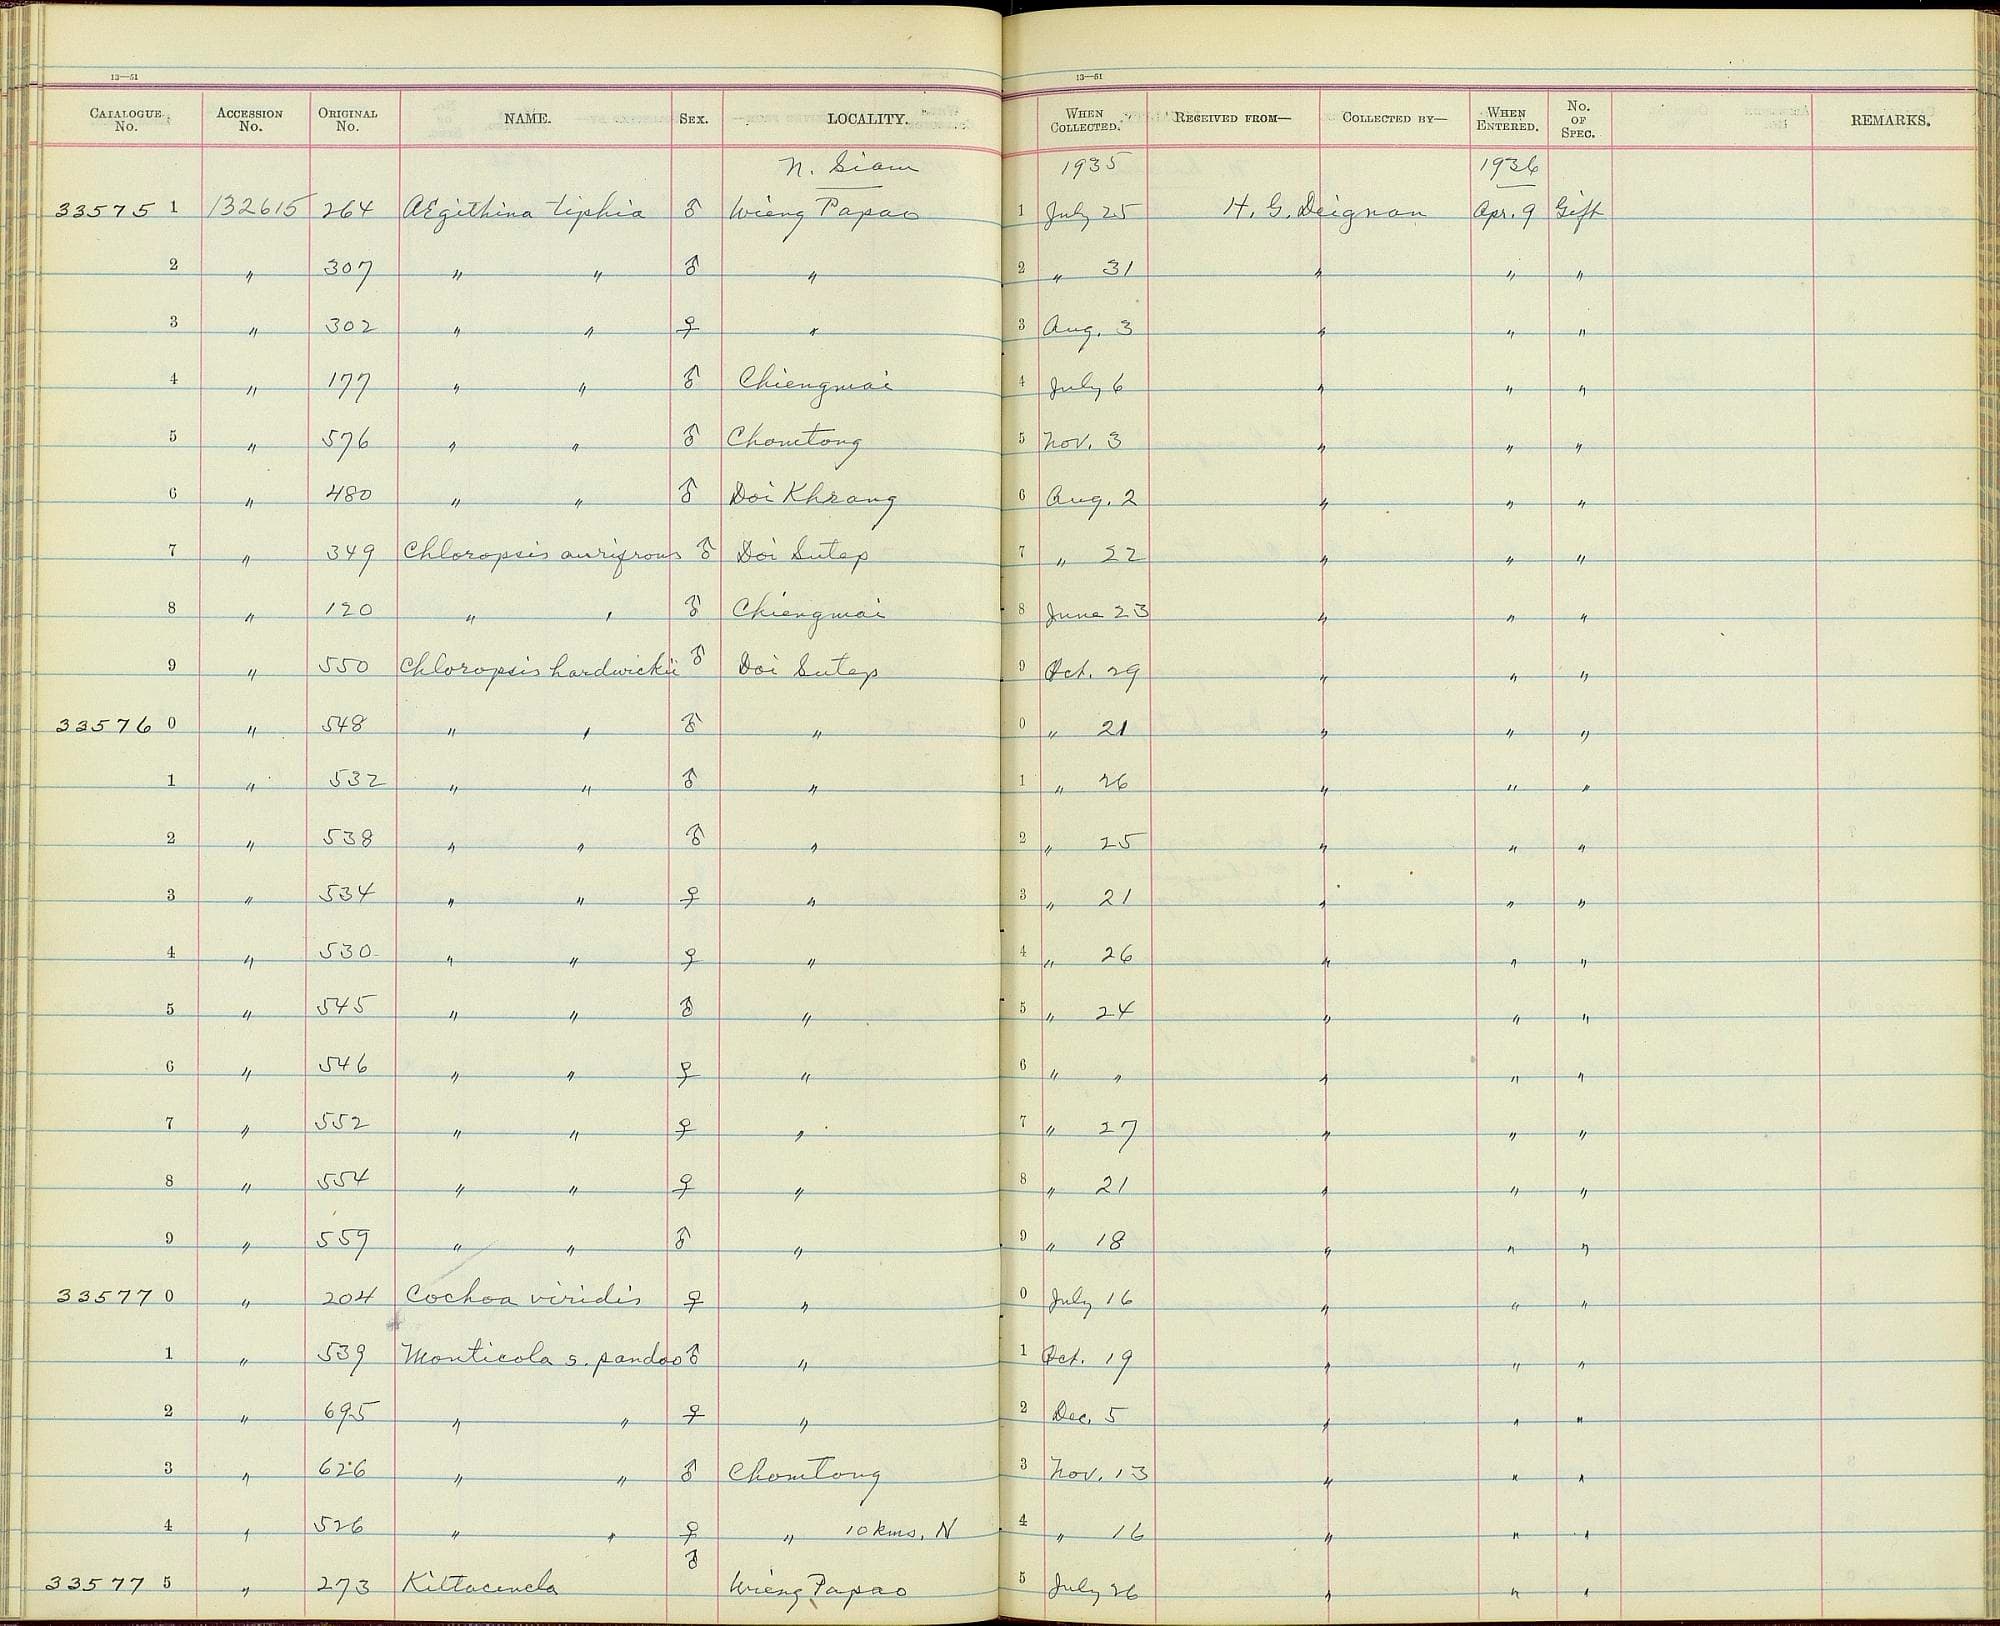 13—51 13—51
CATALOGUE No. ACCESSION No. ORIGINAL No. NAME. SEX. LOCALITY. WHEN COLLECTED. RECEIVED FROM— COLLECTED BY— WHEN ENTERED. No. OF SPEC. REMARKS.
N. Siam 1935 1936
33575 1 132615 264 AEgithina tiphia ♂ Wieng Papao 1 July 25 H. G. Deignan Apr. 9 Gift
2 " 307 " " ♂ " 2 " 31 " " "
3 " 302 " " ♀ " 3 Aug. 3 " " "
4 " 177 " " ♂ Chiengmai 4 July 6 " " "
5 " 576 " " ♂ Chomtong 5 Nov. 3 " " "
6 " 480 " " ♂ Doi Khrang 6 Aug. 2 " " "
7 " 349 Chloropsis aurifrons ♂ Doi Sutep 7 " 22 " " "
8 " 120 " " ♂ Chiengmai 8 June 23 " " "
9 " 550 Chloropsis hardwickii ♂ Doi Sutep 9 Oct. 29 " " "
33576 0 " 548 " " ♂ " 0 " 21 " " "
1 " 532 " " ♂ " 1 " 26 " " "
2 " 538 " " ♂ " 2 " 25 " " "
3 " 534 " " ♀ " 3 " 21 " " "
4 " 530 " " ♀ " 4 " 26 " " "
5 " 545 " " ♂ " 5 " 24 " " "
6 " 546 " " ♀ " 6 " " " " "
7 " 552 " " ♀ " 7 " 27 " " "
8 " 554 " " ♀ " 8 " 21 " " "
9 " 559 " " ♂ " 9 " 18 " " "
33577 0 " 204 Cochoa viridis ♀ " 0 July 16 " " "
1 " 539 Monticola s. pandoo ♂ " 1 Oct. 19 " " "
2 " 695 " " ♀ " 2 Dec. 5 " " "
3 " 626 " " ♂ Chomtong 3 Nov. 13 " " "
4 " 526 " " ♀ " 10 kms. N 4 " 16 " " "
33577 5 " 273 Kittacincla ♂ Wieng Papao 5 July 26 " " "